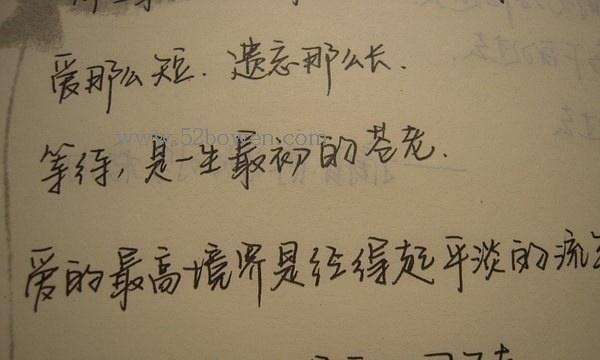 爱那么短.遗忘那么长.
www.52bowen.com
等待,是一生最初的苍老.
爱的最高境界是经得起平淡的流